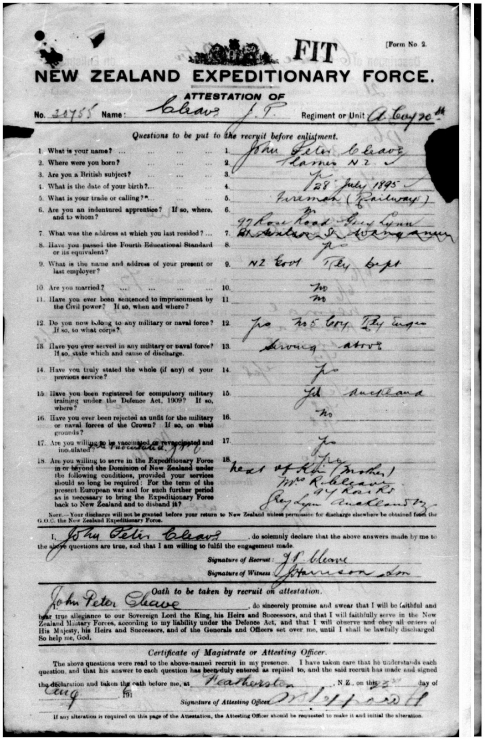 FIT
[Form No. 2.
NEW ZEALAND EXPEDITIONARY FORCE.
ATTESTATION OF
No. 20755 Name: Cleave J. P. Regiment or Unit A Coy 20th
Questions to be put to the recruit before enlistment.
1. What is your name? ... 1. John Peter Cleave
2. Where were you born? ... 2. Thames N Z
3. Are you a British subject? ... 3. yes
4. What is the date of your birth? ... 4. 28 July 1895
5. What is your trade or calling? ... 5. Fireman (Railway)
6. Are you an indentured apprentice? If so, where, 6. no
and to whom?
97 Rose Road Grey Lynn
7. What was the address at which you last resided? ... 7. Wanganui
8. Have you passed the Fourth Educational Standard 8. yes
or its equivalent?
9. What is the name and address of your present or 9. N Z Govt Rly Dept
last employer?
10. Are you married? ... 10. No
11. Have you ever been sentenced to imprisonment by 11. No
the Civil power? If so, when and where?
12. Do you now belong to any military or naval force? 12. yes No 5 Coy. Rly Engrs
If so, to what corps?
13. Have you ever served in any military or naval force? 13. Serving above
If so, state which and cause of discharge.
14. Have you truly stated the whole (if any) of your 14. yes
previous service?
15. Have you been registered for compulsory military 15. yes Auckland
training under the Defence Act, 1909? If so,
where?
16. Have you ever been rejected as unfit for the military 16. no
or naval forces of the Crown? If so, on what
grounds?
17. Are you willing to be vaccinated or revaccinated and 17. yes
inoculated?
18. Are you willing to serve in the Expeditionary Force 18. yes
in or beyond the Dominion of New Zealand under
the following conditions, provided your services
should so long be required: For the term of the
present European war and for such further period
as is necessary to bring the Expeditionary Force
back to New Zealand and to disband it?
next of Kin (Mother)
Mrs R. Cleave
97 Rose Rd
Grey Lynn Auckland
NOTE.—Your discharge will not be granted before your return to New Zealand unless permission for discharge elsewhere be obtained from the
G.O.C. the New Zealand Expeditionary Force.
I, John Peter Cleave, do solemnly declare that the above answers made by me to
the above questions are true, and that I am willing to fulfil the engagement made.
Signature of Recruit: J P Cleave
Signature of Witness: J Harrison
Oath to be taken by recruit on attestation.
I, John Peter Cleave, do sincerely promise and swear that I will be faithful and
bear true allegiance to our Sovereign Lord the King, his Heirs and Successors, and that I will faithfully serve in the
New Zealand Military Forces, according to my liability under the Defence Act, and that I will observe and obey all orders of
His Majesty, his Heirs and Successors, and of the Generals and Officers set over me, until I shall be lawfully discharged.
So help me, God.
Certificate of Magistrate or Attesting Officer.
The above questions were read to the above-named recruit in my presence. I have taken care that he understands each
question, and that his answer to each question has been duly entered as replied to, and the said recruit has made and signed
the declaration and taken the oath before me, at Featherston, N.Z., on this 23rd day of
Aug 191
Signature of Attesting Officer:
If any alteration is required on this page of the Attestation, the Attesting Officer should be requested to make it and initial the alteration.